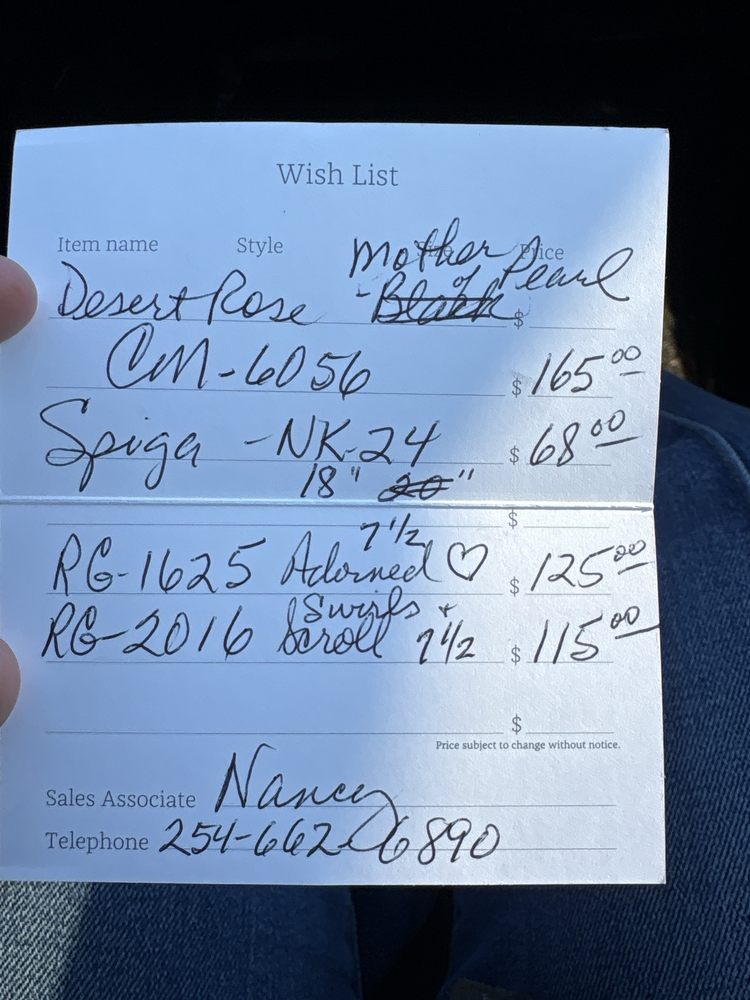 Wish List
Item name Style Size Price
Mother of Pearl
Desert Rose - Black $
CM-6056 $ 165.00
Spiga - NK-24 $ 68.00
18" 20"
$
7 1/2
RG-1625 Adorned ♡ $ 125.00
Swirls +
RG-2016 Scroll 7 1/2 $ 115.00
$
Price subject to change without notice.
Sales Associate Nancy
Telephone 254-662-6890